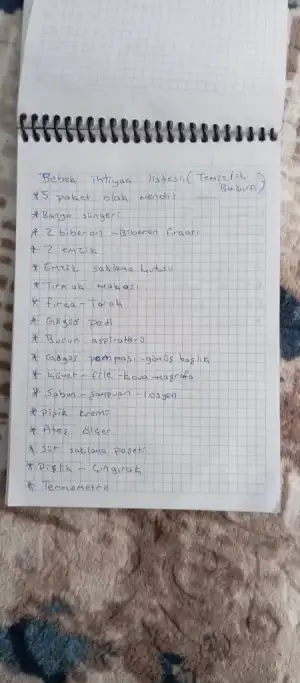 Bebek ihtiyaç listesi (Temizlik
Bakım)
* 5 paket ıslak mendil
* Banyo süngeri
* 2 biberon - Biberon fırçası
* 2 emzik
* Emzik saklama kutusu
* Tırnak makası
* Fırça - Tarak
* Göğüs pedi
* Burun aspiratörü
* Göğüs pompası - gümüş başlık
* Küvet - file - kova - maşrafa
* Sabun - şampuan - losyon
* Pişik kremi
* Ateş ölçer
* Süt saklama poşeti
* Dişlik - Çıngırak
* Termometre